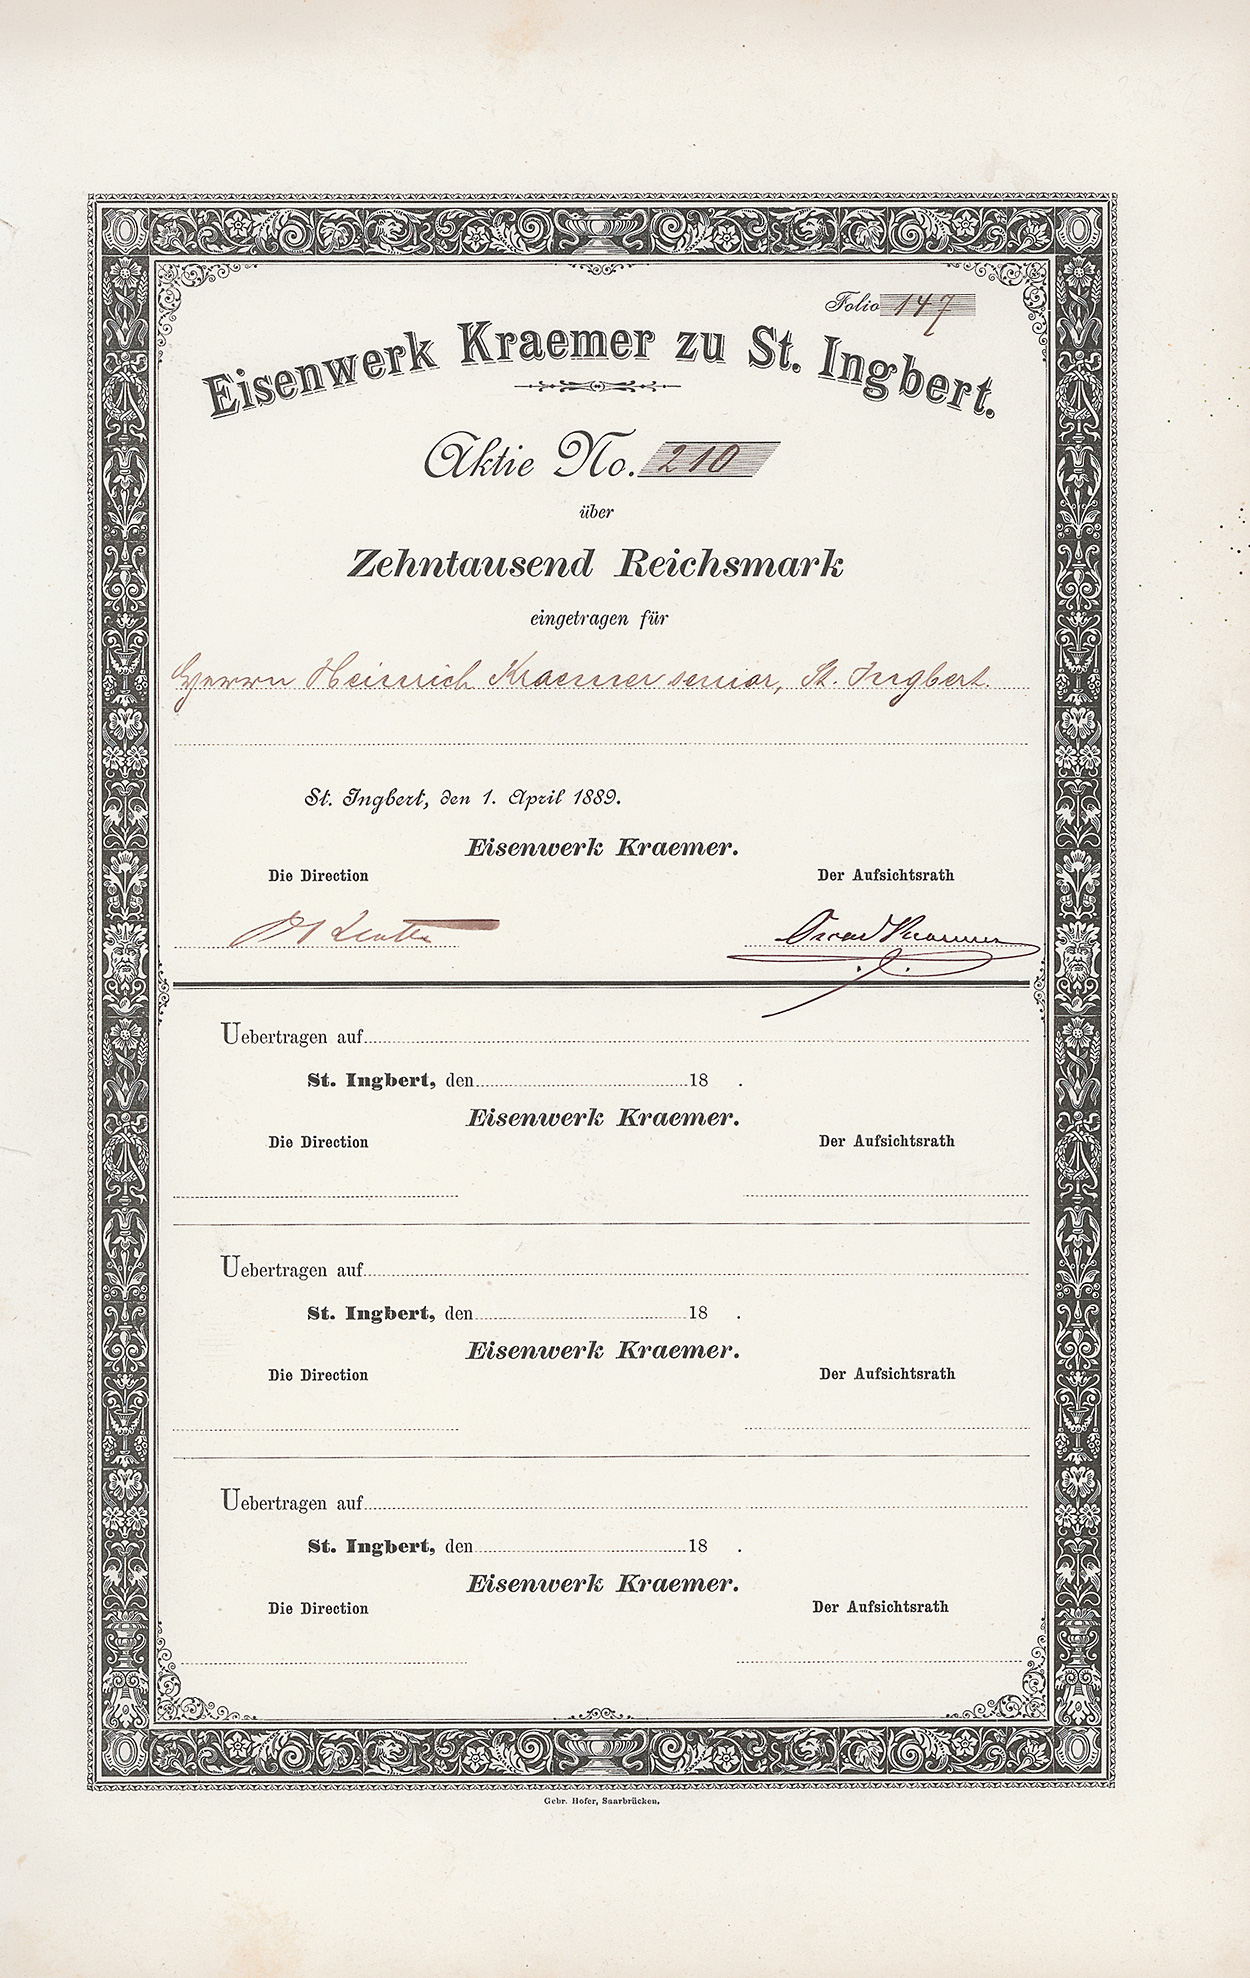 Folio 147
Eisenwerk Kraemer zu St. Ingbert.
Aktie No. 210
über
Zehntausend Reichsmark
eingetragen für
Herrn Heinrich Kraemer senior, St. Ingbert.
St. Ingbert, den 1. April 1889.
Eisenwerk Kraemer.
Die Direction Der Aufsichtsrath
Oscar Kraemer
Uebertragen auf
St. Ingbert, den 18 .
Eisenwerk Kraemer.
Die Direction Der Aufsichtsrath
Uebertragen auf
St. Ingbert, den 18 .
Eisenwerk Kraemer.
Die Direction Der Aufsichtsrath
Uebertragen auf
St. Ingbert, den 18 .
Eisenwerk Kraemer.
Die Direction Der Aufsichtsrath
Gebr. Hofer, Saarbrücken.